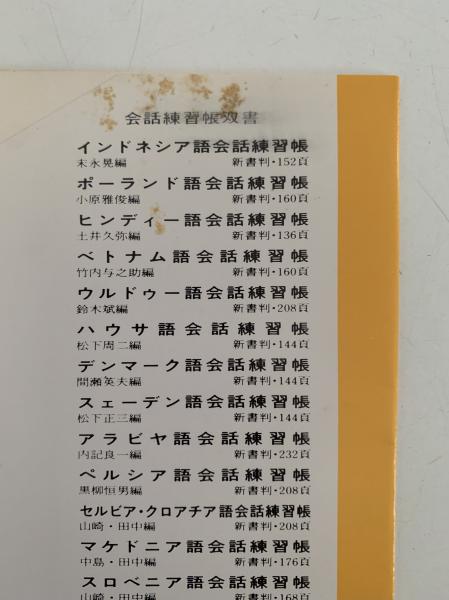 会話練習帳双書
インドネシア語会話練習帳
末永晃編 新書判・152頁
ポーランド語会話練習帳
小原雅俊編 新書判・160頁
ヒンディー語会話練習帳
土井久弥編 新書判・136頁
ベトナム語会話練習帳
竹内与之助編 新書判・160頁
ウルドゥー語会話練習帳
鈴木斌編 新書判・208頁
ハウサ語会話練習帳
松下周二編 新書判・144頁
デンマーク語会話練習帳
間瀬英夫編 新書判・144頁
スェーデン語会話練習帳
松下正三編 新書判・144頁
アラビヤ語会話練習帳
内記良一編 新書判・232頁
ペルシア語会話練習帳
黒柳恒男編 新書判・208頁
セルビア・クロアチア語会話練習帳
山崎・田中編 新書判・208頁
マケドニア語会話練習帳
中島・田中編 新書判・176頁
スロベニア語会話練習帳
山崎・田中編 新書判・168頁